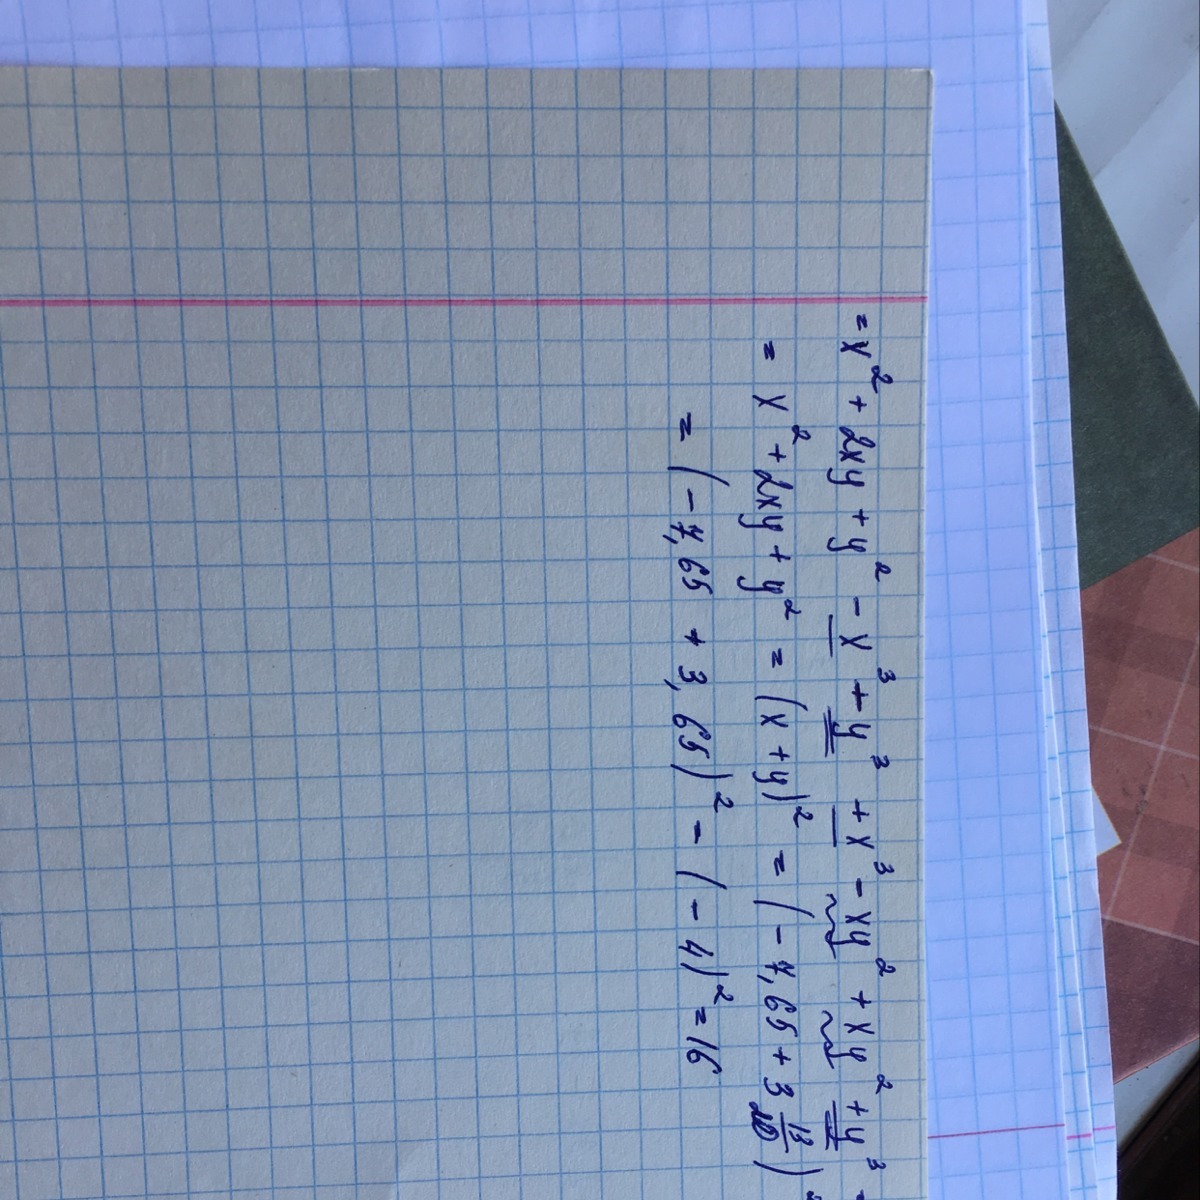 = x² + 2xy + y² - x³ + y³ + x³ - xy² + xy² + y³ =
= x² + 2xy + y² = (x + y)² = (- 7,65 + 3 13/20)²
= (- 7,65 + 3,65)² = (- 4)² = 16